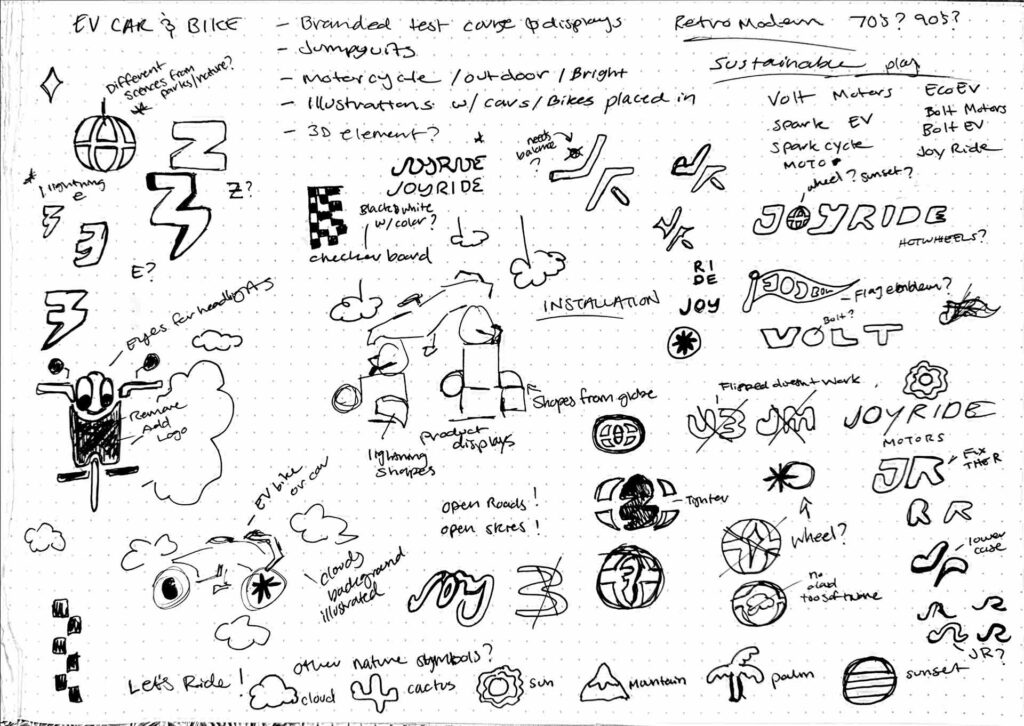 EV CAR & BIKE
- Branded test cars & displays
- Jumpsuits
- Motorcycle / outdoor / Bright
- Illustrations w/ cars/Bikes placed in
- 3D element?
Retro Modern 70s? 90s?
Sustainable play
Volt Motors
Spark EV
Spark cycle
MOTO
EcoEV
Bolt Motors
Bolt EV
Joy Ride
Different
scenes from
parks/nature?
Z
Z?
lightning
E
E?
JOYRIDE
JOYRIDE
Black & white
w/color?
checker board
needs
balance
?
wheel? sunset?
JOYRIDE
HOTWHEELS?
RI
DE
JOY
Flag emblem?
Bolt?
VOLT
INSTALLATION
Eyes for headlights
Remove
Add
Logo
Shapes from globe
product
displays
lightning
shapes
Flipped doesn't work
JM
JOYRIDE
MOTORS
JR
FIX
THE R
R R
lower
case
JR
JR?
EV bike
or car
open Roads!
open skies!
Tighter
wheel?
no
cloud
too soft
clouds
background
illustrated
JOY
Let's Ride!
other nature symbols?
cloud
cactus
sun
Mantain
palm
sunset